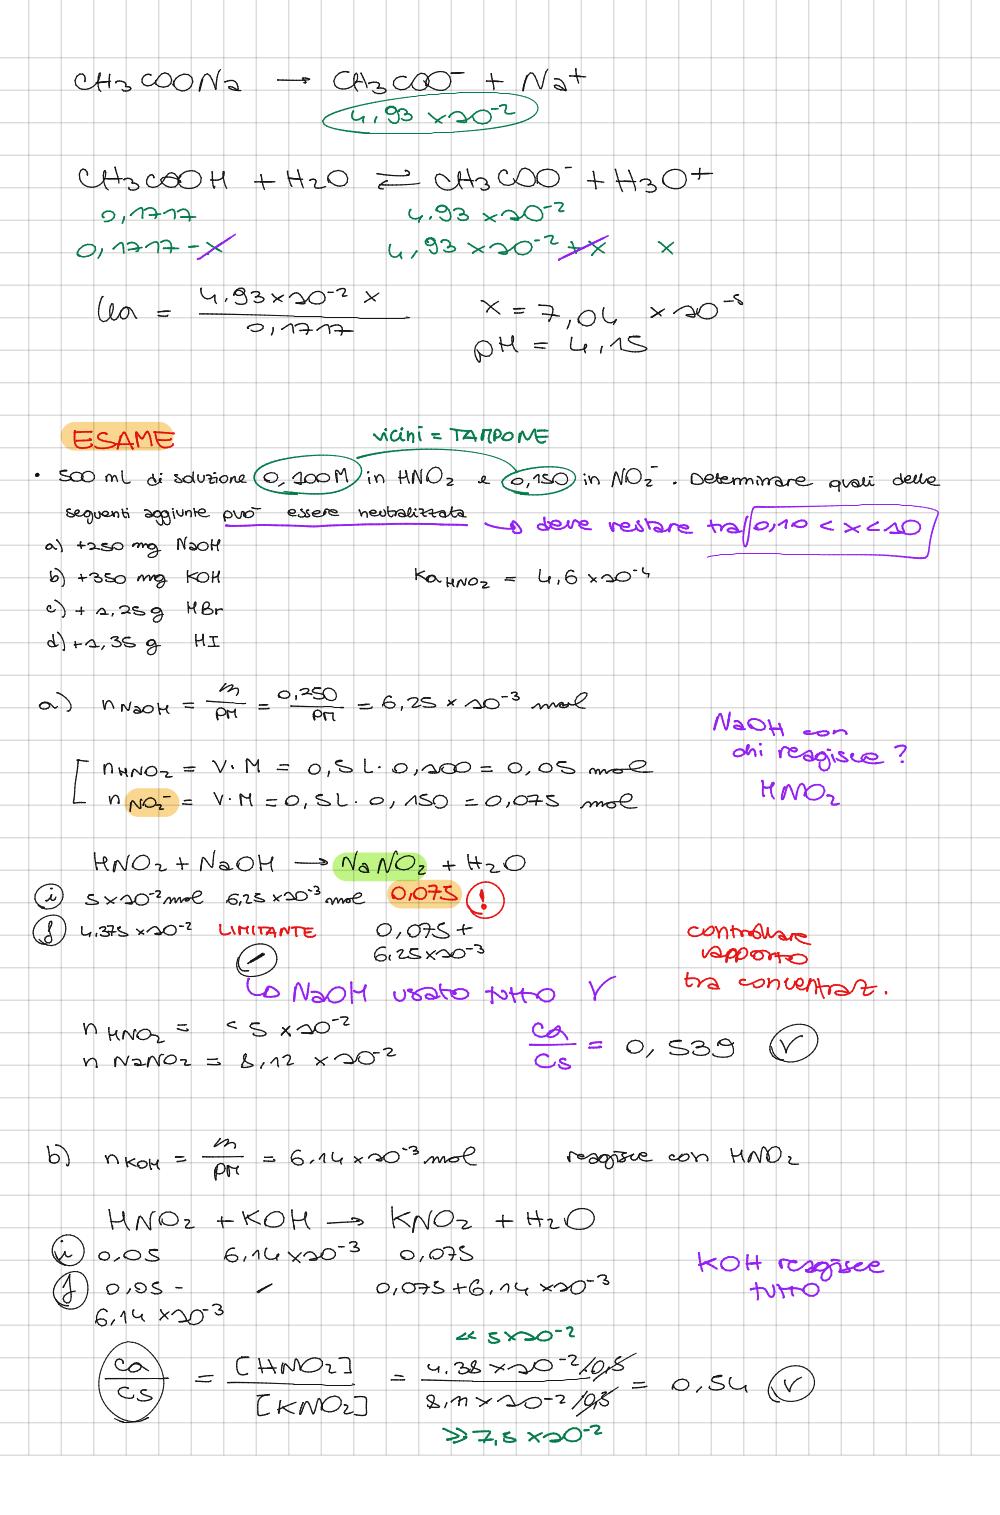 CH3COONa → CH3COO⁻ + Na+
4,93 x10⁻²
CH3COOH + H2O ⇌ CH3COO⁻ + H3O+
0,1717 4,93 x10⁻²
0,1717 - x 4,93 x10⁻² + x x
Ka = 4,93x10⁻² x / 0,1717 x = 7,04 x10⁻⁵
pH = 4,15
ESAME
vicini = TAMPONE
• 500 mL di soluzione 0,100M in HNO2 e 0,150 in NO2⁻. Determinare quali delle
seguenti aggiunte può essere neutralizzata → deve restare tra 0,10 < x < 10
a) +250 mg NaOH
b) +350 mg KOH Ka HNO2 = 4,6 x10⁻⁴
c) + 1,25 g HBr
d) +1,35 g HI
a) n NaOH = m/PM = 0,250/PM = 6,25 x 10⁻³ mol
NaOH con
chi reagisce?
HNO2
n HNO2 = V·M = 0,5L·0,100 = 0,05 mol
n NO2⁻ = V·M = 0,5L·0,150 = 0,075 mol
HNO2 + NaOH → NaNO2 + H2O
i 5x10⁻² mol 6,25x10⁻³ mol 0,075 !
f 4,375 x10⁻² LIMITANTE 0,075 +
/ 6,25x10⁻³
controllare
rapporto
tra concentraz.
↳ NaOH usato tutto V
n HNO2 = < 5 x10⁻²
n NaNO2 = 8,12 x10⁻²
Ca/Cs = 0,539 V
b) n KOH = m/PM = 6,14x10⁻³ mol reagisce con HNO2
HNO2 + KOH → KNO2 + H2O
i 0,05 6,14x10⁻³ 0,075
f 0,05 - / 0,075+6,14x10⁻³
6,14 x10⁻³
KOH reagisce
tutto
<< 5x10⁻²
Ca/Cs = [HNO2]/[KNO2] = 4,38 x10⁻²/0,5 / 8,11 x10⁻²/0,5 = 0,54 V
>> 7,5 x10⁻²